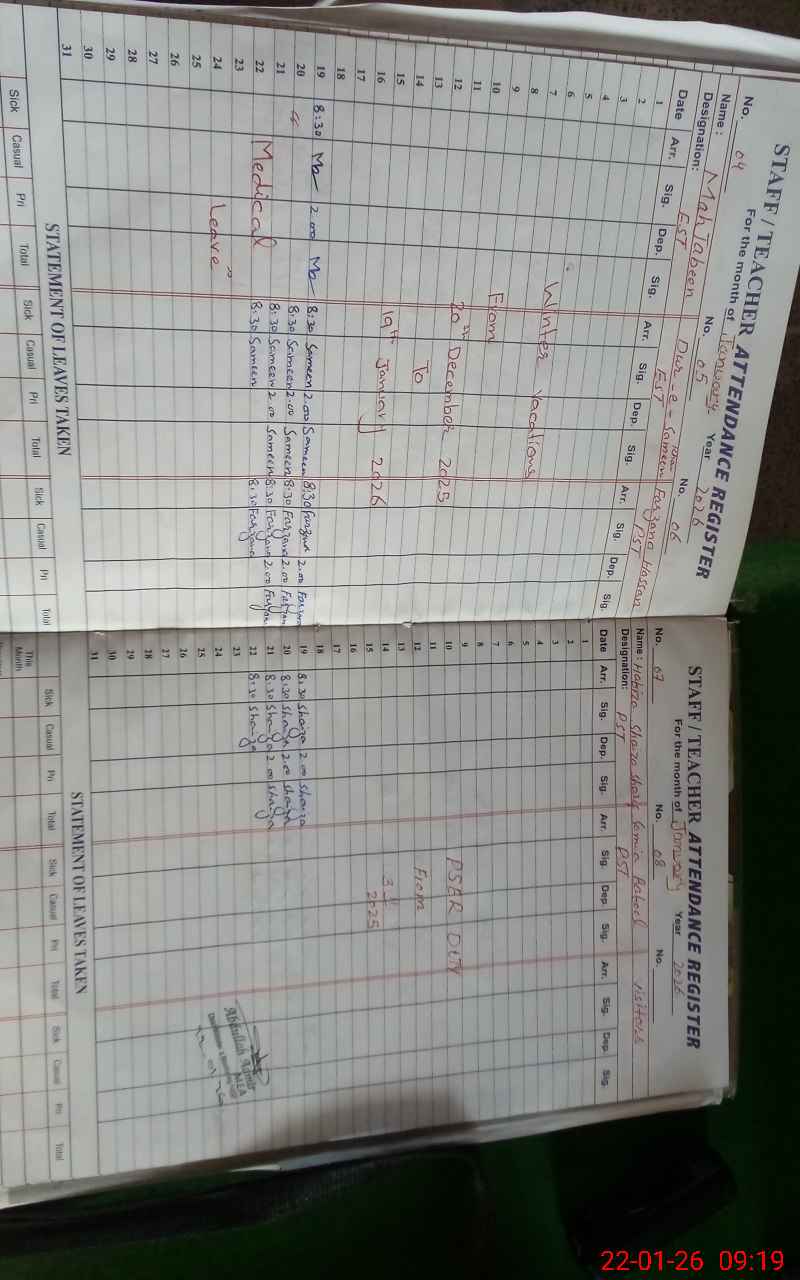 STAFF / TEACHER ATTENDANCE REGISTER
For the month of January Year 2026
No. 04 No. 05 No. 06
Name : Mah Jabeen Dur-e-Sameen Farzana Hassan
Designation: EST EST PST
Date Arr. Sig. Dep. Sig. Arr. Sig. Dep. Sig. Arr. Sig. Dep. Sig.
1
2
3
4
5
6
7
8 Winter vacations
9
10 From
11
12 20th December 2025
13
14 To
15
16 19th January 2026
17
18
19 8:30 2.00 8:30 Sameen 2.00 Sameen 8:30 Farzana 2.00 Farzana
20 8:30 Sameen 2.00 Sameen 8:30 Farzana 2.00
21 8:30 Sameen 2.00 Sameen 8:30 Farzana 2.00
22 Medical 8:30 Sameen 8:30 Farzana
23
24 Leave"
25
26
27
28
29
30
31
STATEMENT OF LEAVES TAKEN
Sick Casual Pri Total Sick Casual Pri Total Sick Casual Pri Total
STAFF / TEACHER ATTENDANCE REGISTER
For the month of January Year 2026
No. 07 No. 08 No.
Name : Shaiza visitors
Designation: PST PST
Date Arr. Sig. Dep. Sig. Arr. Sig. Dep. Sig. Arr. Sig. Dep. Sig.
1
2
3
4
5
6
7
8
9
10 PSER DUTY
11
12 From
13
14
15 2025
16
17
18
19 8:30 Shaiza 2.00 Shaiza
20 8:30 Shaiza 2.00 Shaiza
21 8:30 Shaiza 2.00 Shaiza
22 8:30 Shaiza
23
24
25
26
27
28
29
30
31
Abdullah
MEA
STATEMENT OF LEAVES TAKEN
Sick Casual Pri Total Sick Casual Pri Total Sick Casual Pri Total
This Month
22-01-26 09:19